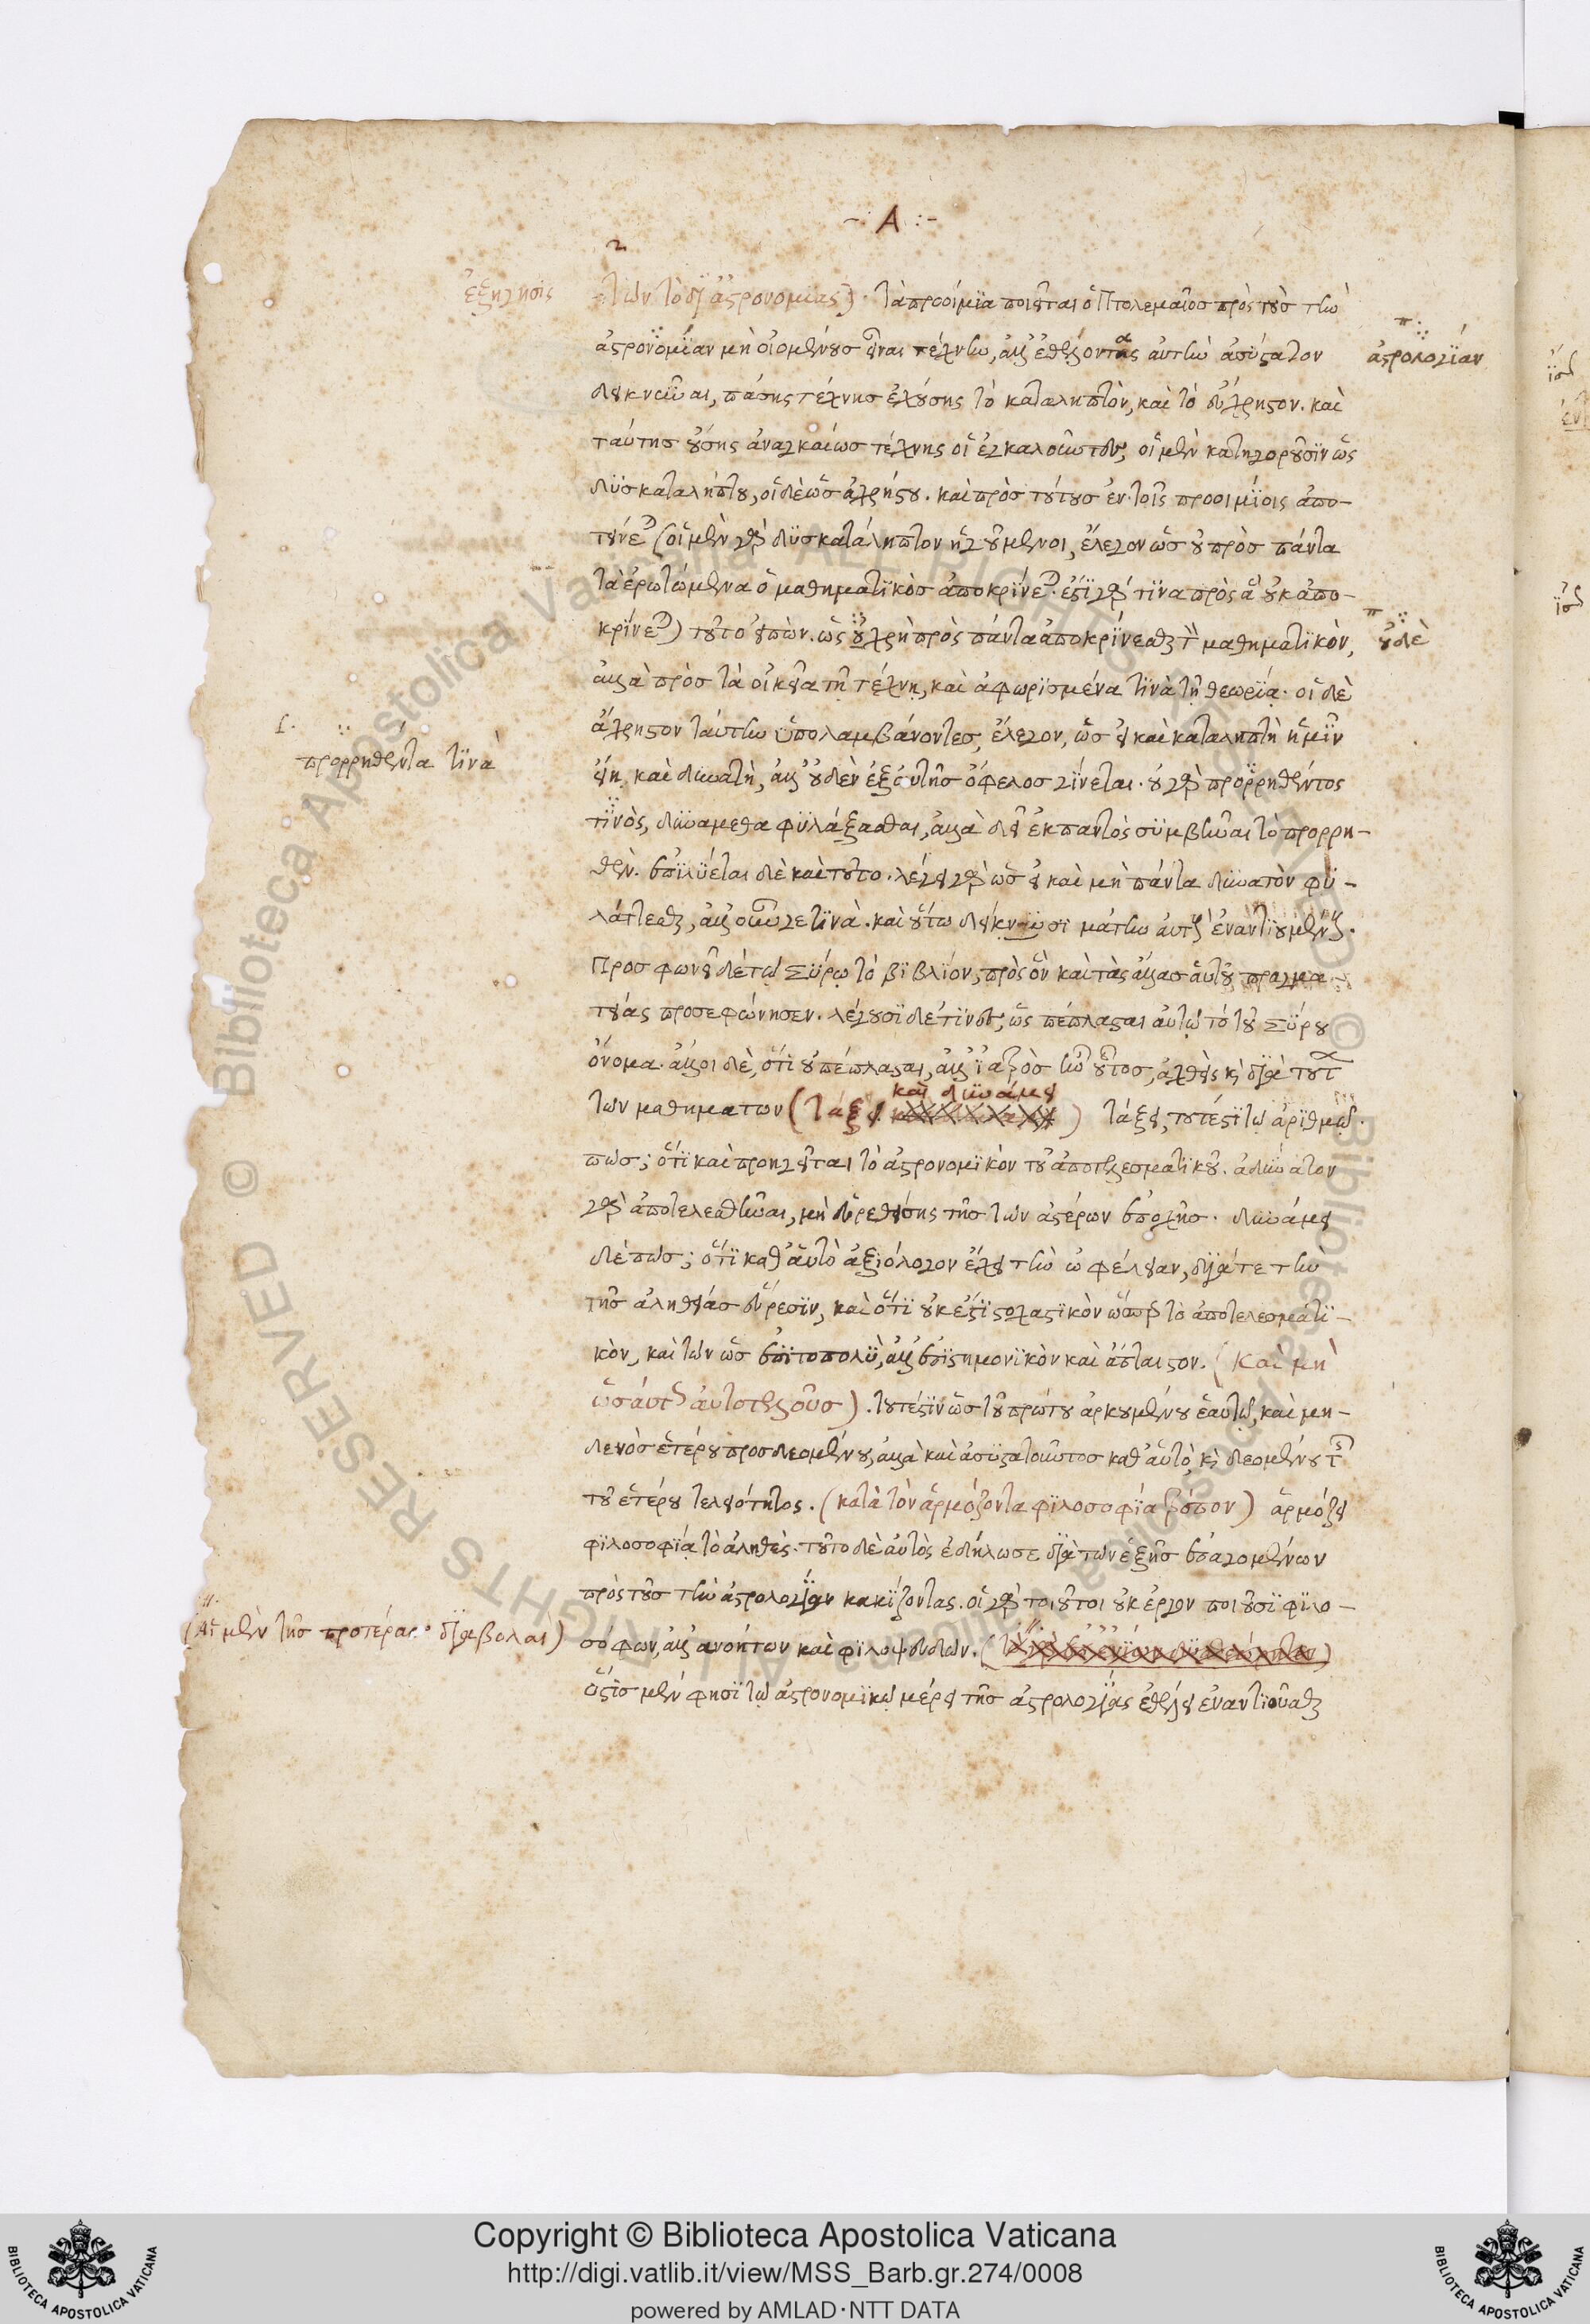 -: Α :-
ἐξήγησις
τῶν τὸ δι' ἀστρονομίας). τὰ προοίμια ποιεῖται ὁ Πτολεμαῖος πρὸς τοὺς τὴν
ἀστρονομίαν μὴ οἰομένους εἶναι τέχνην, ἀλλ' ἐθέλοντας αὐτὴν ἀσύστατον
ἀστρολογίαν
δεικνύναι, πάσης τέχνης ἐχούσης τὸ καταληπτὸν, καὶ τὸ εὔχρηστον. καὶ
ταύτης οὔσης ἀναγκαίως τέχνης οἱ ἐγκαλοῦντες, οἱ μὲν κατηγοροῦσιν ὡς
δυσκαταλήπτου, οἱ δὲ ὡς ἀχρήστου. καὶ πρὸς τούτους ἐν τοῖς προοιμίοις ἀπο-
τείνεται (οἱ μὲν γὰρ δυσκατάληπτον ἡγούμενοι, ἔλεγον ὡς οὐ πρὸς πάντα
τὰ ἐρωτώμενα ὁ μαθηματικὸς ἀποκρίνεται. ἔστι γὰρ τινα πρὸς ἃ οὐκ ἀπο-
κρίνεται) τοῦτο εἰπὼν. ὡς οὐ χρὴ πρὸς πάντα ἀποκρίνεσθαι τὸν μαθηματικὸν,
οὐδὲ
ἀλλὰ πρὸς τὰ οἰκεῖα τῇ τέχνῃ, καὶ ἀφωρισμένα τινὰ τῇ θεωρίᾳ. οἱ δὲ
ἄχρηστον ταύτην ὑπολαμβάνοντες, ἔλεγον, ὡς εἰ καὶ καταληπτὴ ἡμῖν
προρρηθέντα τινὰ
εἴη, καὶ δυνατὴ, ἀλλ' οὐδὲν ἐξ αὐτῆς ὄφελος γίνεται. οὐ γὰρ προρρηθέντος
τινὸς, δυνάμεθα φυλάξασθαι, ἀλλὰ δεῖ ἐκ παντὸς συμβῆναι τὸ προρρη-
θέν. ἐπιλύεται δὲ καὶ τοῦτο. λέγει γὰρ ὡς εἰ καὶ μὴ πάντα δυνατὸν φυ-
λάττεσθαι, ἀλλ' οὖν γε τινὰ. καὶ οὕτω δείκνυσι μάτην αὐτοῖς ἐναντιουμένοις.
Προσφωνεῖ δὲ τῷ Σύρῳ τὸ βιβλίον, πρὸς ὃν καὶ τὰς ἄλλας αὐτοῦ πραγμα-
τείας προσεφώνησεν. λέγουσι δέ τινες, ὡς πέπλασται αὐτῷ τὸ τοῦ Σύρου
ὄνομα. ἄλλοι δὲ, ὅτι οὐ πέπλασται, ἀλλ' ἰατρὸς ἦν οὗτος, ἀχθεὶς καὶ διὰ τούτων
τῶν μαθημάτων (τάξει καὶ δυνάμει) τάξει, τουτέστι τῷ ἀριθμῷ.
πῶς; ὅτι καὶ προηγεῖται τὸ ἀστρονομικὸν τοῦ ἀποτελεσματικοῦ. ἀδύνατον
γὰρ ἀποτελεσθῆναι, μὴ εὑρεθείσης τῆς τῶν ἀστέρων ἐποχῆς. δυνάμει
δὲ πῶς; ὅτι καθ' αὑτὸ ἀξιόλογον ἔχει τὴν ὠφέλειαν, διά τε τὴν
τῆς ἀληθείας εὕρεσιν, καὶ ὅτι οὐκ ἔστι στοχαστικὸν ὥσπερ τὸ ἀποτελεσματι-
κὸν, καὶ τῶν ὡς ἐπιτοπολὺ, ἀλλ' ἐπιστημονικὸν καὶ ἄπταιστον. (Καὶ μὴ
ὡσαύτως αὐτοτελοῦς). τουτέστιν ὡς τοῦ πρώτου ἀρκουμένου ἑαυτῷ, καὶ μη-
δενὸς ἑτέρου προσδεομένου, ἀλλὰ καὶ ἀσυστατοῦντος καθ' αὑτὸ, καὶ δεομένου τῆς
τοῦ ἑτέρου τελειότητος. (κατὰ τὸν ἁρμόζοντα φιλοσοφίᾳ τρόπον) ἁρμόζει
φιλοσοφίᾳ τὸ ἀληθὲς. τοῦτο δὲ αὐτὸς ἐδήλωσε διὰ τῶν ἑξῆς ἐπαγομένων
πρὸς τοὺς τὴν ἀστρολογίαν κακίζοντας. οἱ γὰρ τοιοῦτοι οὐκ ἔργον ποιοῦσι φιλο-
(Αἱ μὲν τῆς προτέρας διαβολαὶ)
σόφων, ἀλλ' ἀνοήτων καὶ φιλοψευδῶν.
ὅστις μὲν φησὶ τῷ ἀστρονομικῷ μέρει τῆς ἀστρολογίας ἐθέλει ἐναντιοῦσθαι
Copyright © Biblioteca Apostolica Vaticana
http://digi.vatlib.it/view/MSS_Barb.gr.274/0008
powered by AMLAD·NTT DATA
BIBLIOTECA APOSTOLICA VATICANA
BIBLIOTECA APOSTOLICA VATICANA
© Biblioteca Apostolica Vaticana ALL RIGHTS RESERVED